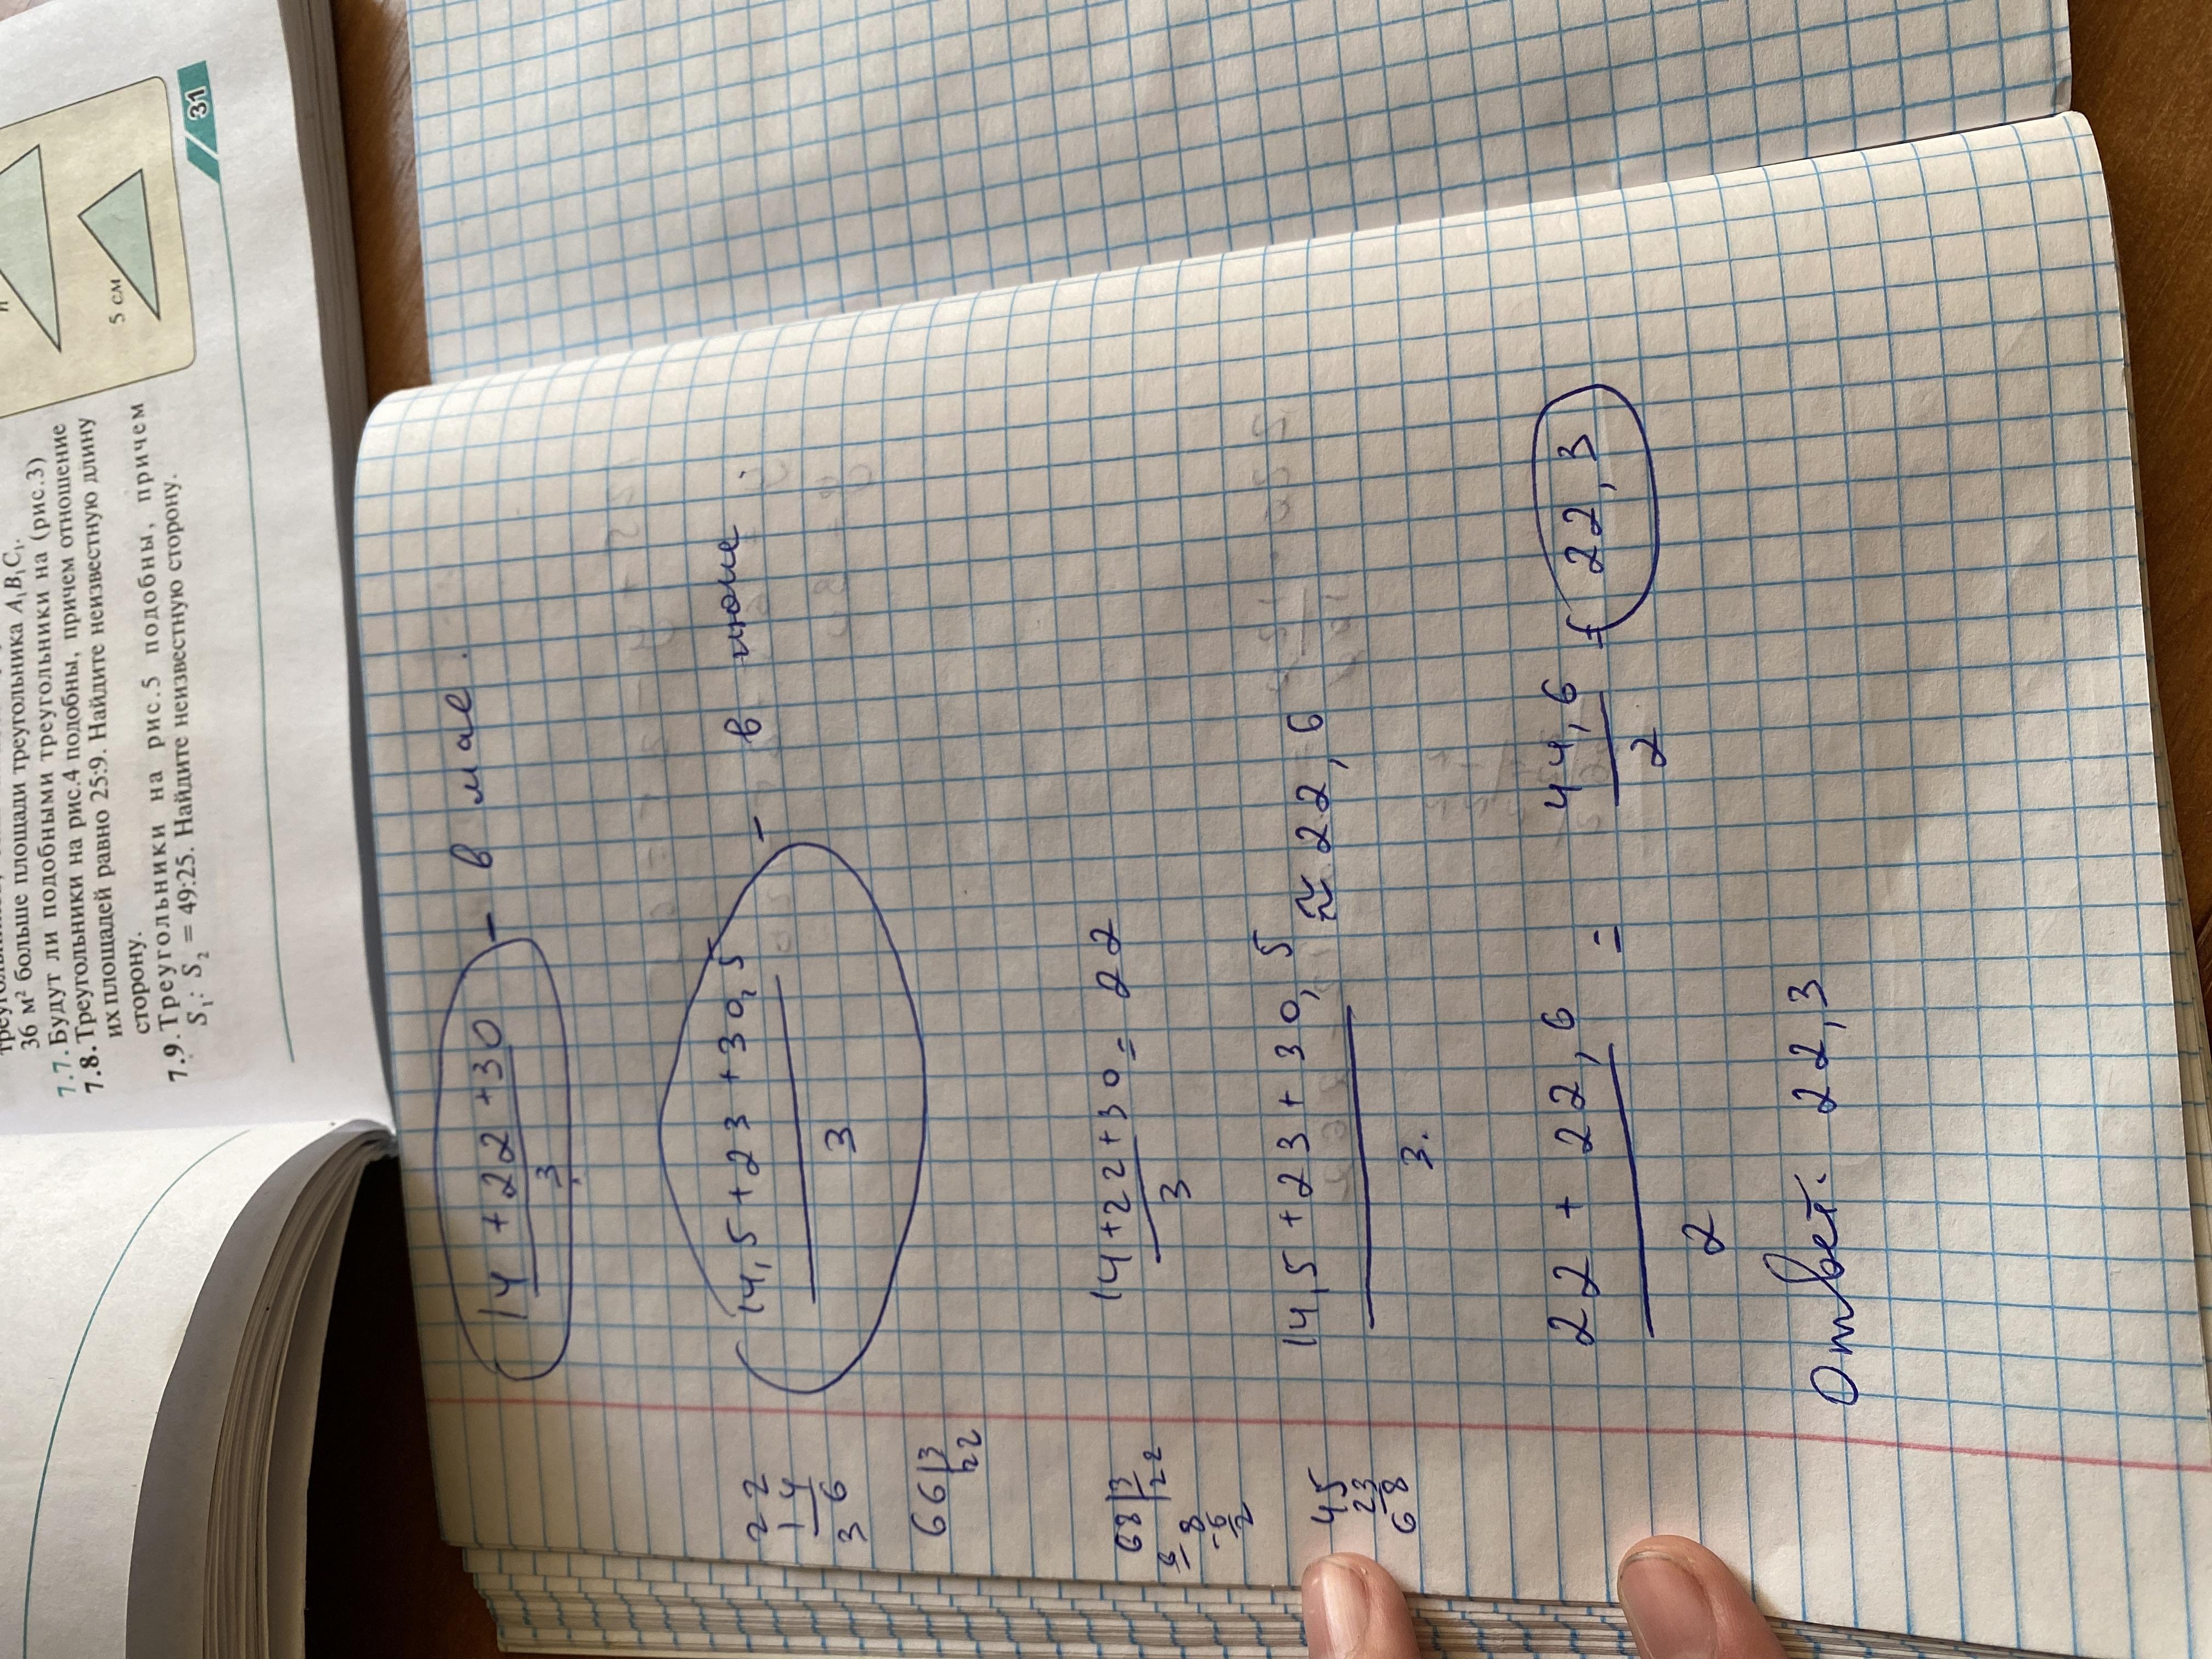 36 м² больше площади треугольника A₁B₁C₁.
7.7. Будут ли подобными треугольники на (рис.3)
7.8. Треугольники на рис.4 подобны, причем отношение
их площадей равно 25:9. Найдите неизвестную длину
сторону.
7.9. Треугольники на рис.5 подобны, причем
S₁: S₂ = 49:25. Найдите неизвестную сторону.
5 см
31
14 + 22 + 30
3
- в мае.
14,5 + 23 + 30,5
3
- в июне.
14 + 22 + 30 = 22
3
14,5 + 23 + 30,5 ≈ 22,6
3.
22 + 22,6 = 44,6 = 22,3
2 2
Ответ: 22,3
22
14
36
66 3
22
68 3
6 22
8
-6
2
45
23
68